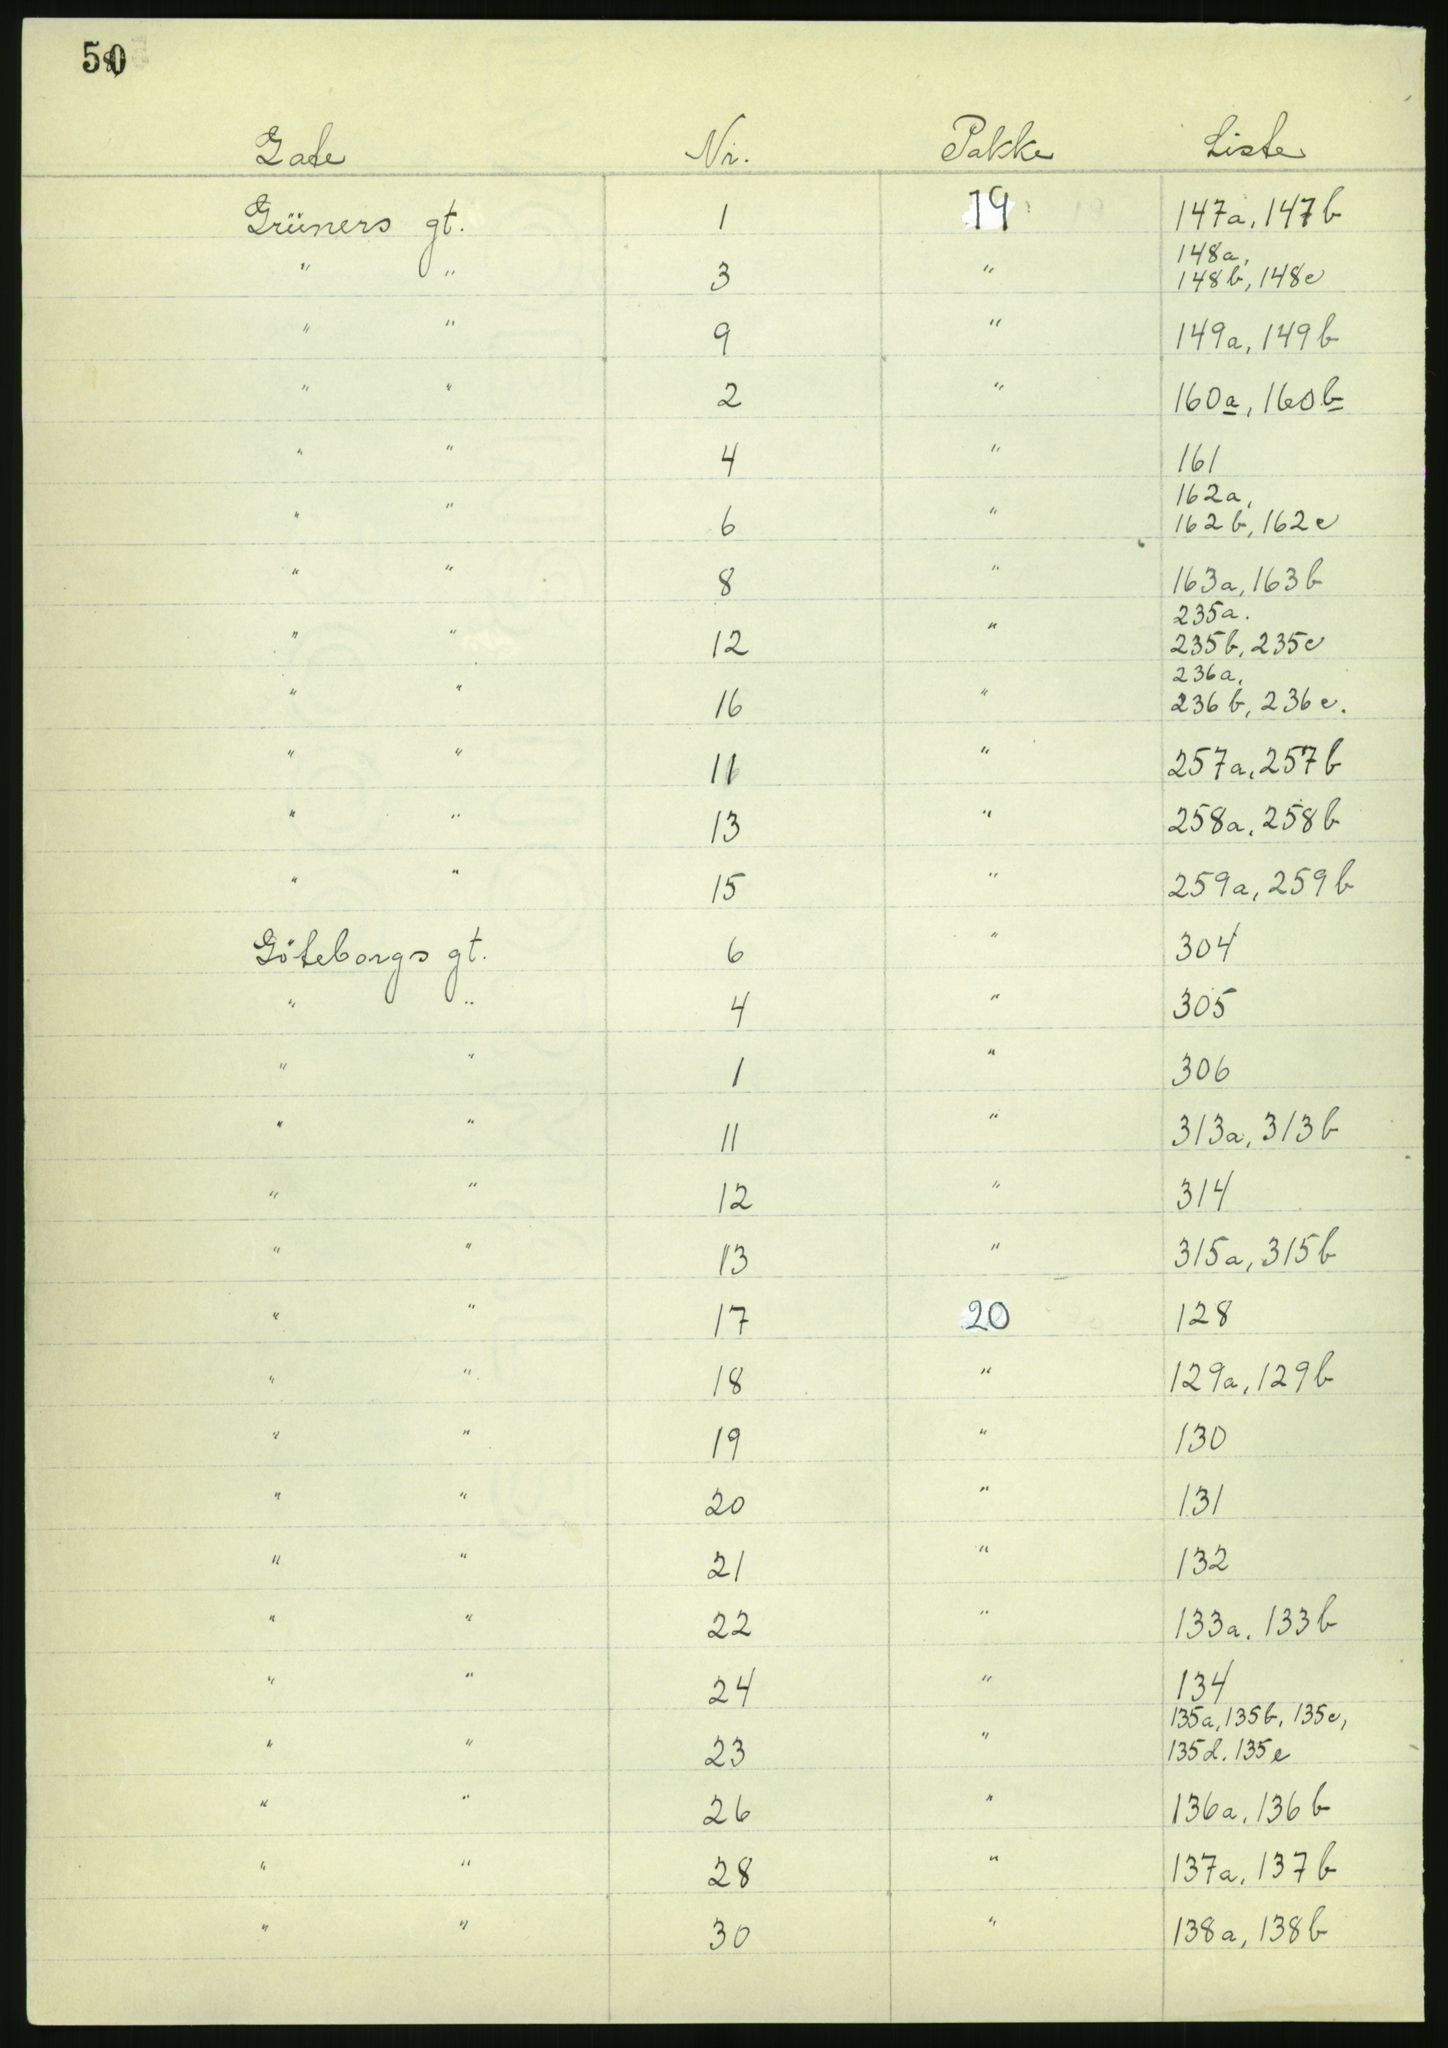 50
Gate Nr. Pakke Liste
Grüners gt. 1 19 147a, 147b
148a,
" " 3 " 148b, 148c
" " 9 " 149a, 149b
" " 2 " 160a, 160b
" " 4 " 161
162a,
" " 6 " 162b, 162c
" " 8 " 163a, 163b
235a.
" " 12 " 235b, 235c
236a,
" " 16 " 236b, 236c.
" " 11 " 257a, 257b
" " 13 " 258a, 258b
" " 15 " 259a, 259b
Göteborgs gt. 6 " 304
" " 4 " 305
" " 1 " 306
" " 11 " 313a, 313b
" " 12 " 314
" " 13 " 315a, 315b
" " 17 20 128
" " 18 " 129a, 129b
" " 19 " 130
" " 20 " 131
" " 21 " 132
" " 22 " 133a. 133b
" " 24 " 134
135a, 135b, 135c,
" " 23 " 135d. 135e
" " 26 " 136a, 136b
" " 28 " 137a, 137b
" " 30 " 138a, 138b